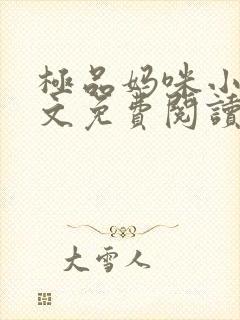 極品妈咪小
文免費閱讀
大雪人